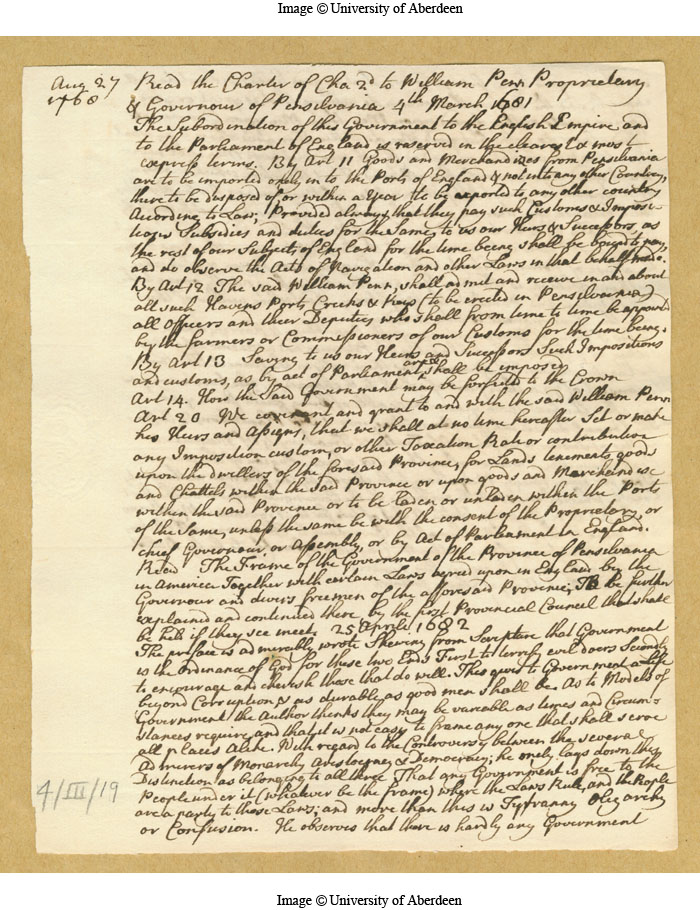 Image © University of Aberdeen
Aug 27 Read the Charter of Cha 2d to William Penn Proprietary
1768 & Governour of Pensilvania 4th March 1681
The Subordination of this Government to the English Empire and
to the Parliament of England is reserved in the clearest & most
express terms. By Art 11 Goods and Merchandizes from Pensilvania
are to be imported only into the Ports of England & not into any other Country,
there to be disposed of, or within a Year to be exported to any other country
According to Law; Provided always that they pay such Customs & Imposi-
tions Subsidies and duties for the Same, to us our Heirs & Successors, as
the rest of our Subjects of England for the time being shall be bound to pay,
and do observe the Acts of Navigation and other Laws in that behalf made.
By Art 12 The said William Penn, shall admit and receive in and about
all such Havens Ports Creeks & Keys (to be erected in Pensilvania)
all Officers and their Deputies who shall from time to time be appointed
by the farmers or Commissioners of our Customs for the time being.
By Art 13 Saving to us our Heirs and Successors Such Impositions
and customs, as by act of Parliament are & shall be imposed
Art 14. How the Said Government may be forfeited to the Crown
Art 20 We covenant and grant to and with the said William Penn
his Heirs and Assigns, that we shall at no time hereafter Set or make
any Imposition custom, or other Taxation Rate or contribution
upon the dwellers of the foresaid Province, for Lands tenements goods
and Chattels within the said Province or upon goods and Merchandise
within the said Province or to be laden or unladen within the Ports
of the Same, unless the same be with the consent of the Proprietary, or
chief Governour, or Assembly, or by Act of Parliament in England.
Read The Frame of the Government of the Province of Pensilvania
in America Together with certain Laws agreed upon in England by the
Governour and divers freemen of the aforesaid Province; To be further
explained and continued there by the first Provincial Council that shall
be held if they see meet. 25 April 1682
The preface is admirably wrote Shewing from Scripture that Government
is the Ordinance of God for these two Ends First to terrify evil doers Secondly
to encourage and cherish those that do well. This gives to Government a Life
beyond Corruption & as durable as good men shall be. As to Models of
Government the Author thinks they may be variable as times and Circum-
stances require, and that it is not easy to frame any one that shall serve
all places Alike. With regard to the Controversy between the several
Admirers of Monarchy Aristocracy & Democracy; he only lays down this
Distinction as belonging to all three That any Government is free to the
People under it (whatever be the frame) where the Laws Rule, and the People
are a party to those Laws; and more than this is Tyranny Oligarchy
or Confusion. He observes that there is hardly any Government
4/III/19
Image © University of Aberdeen